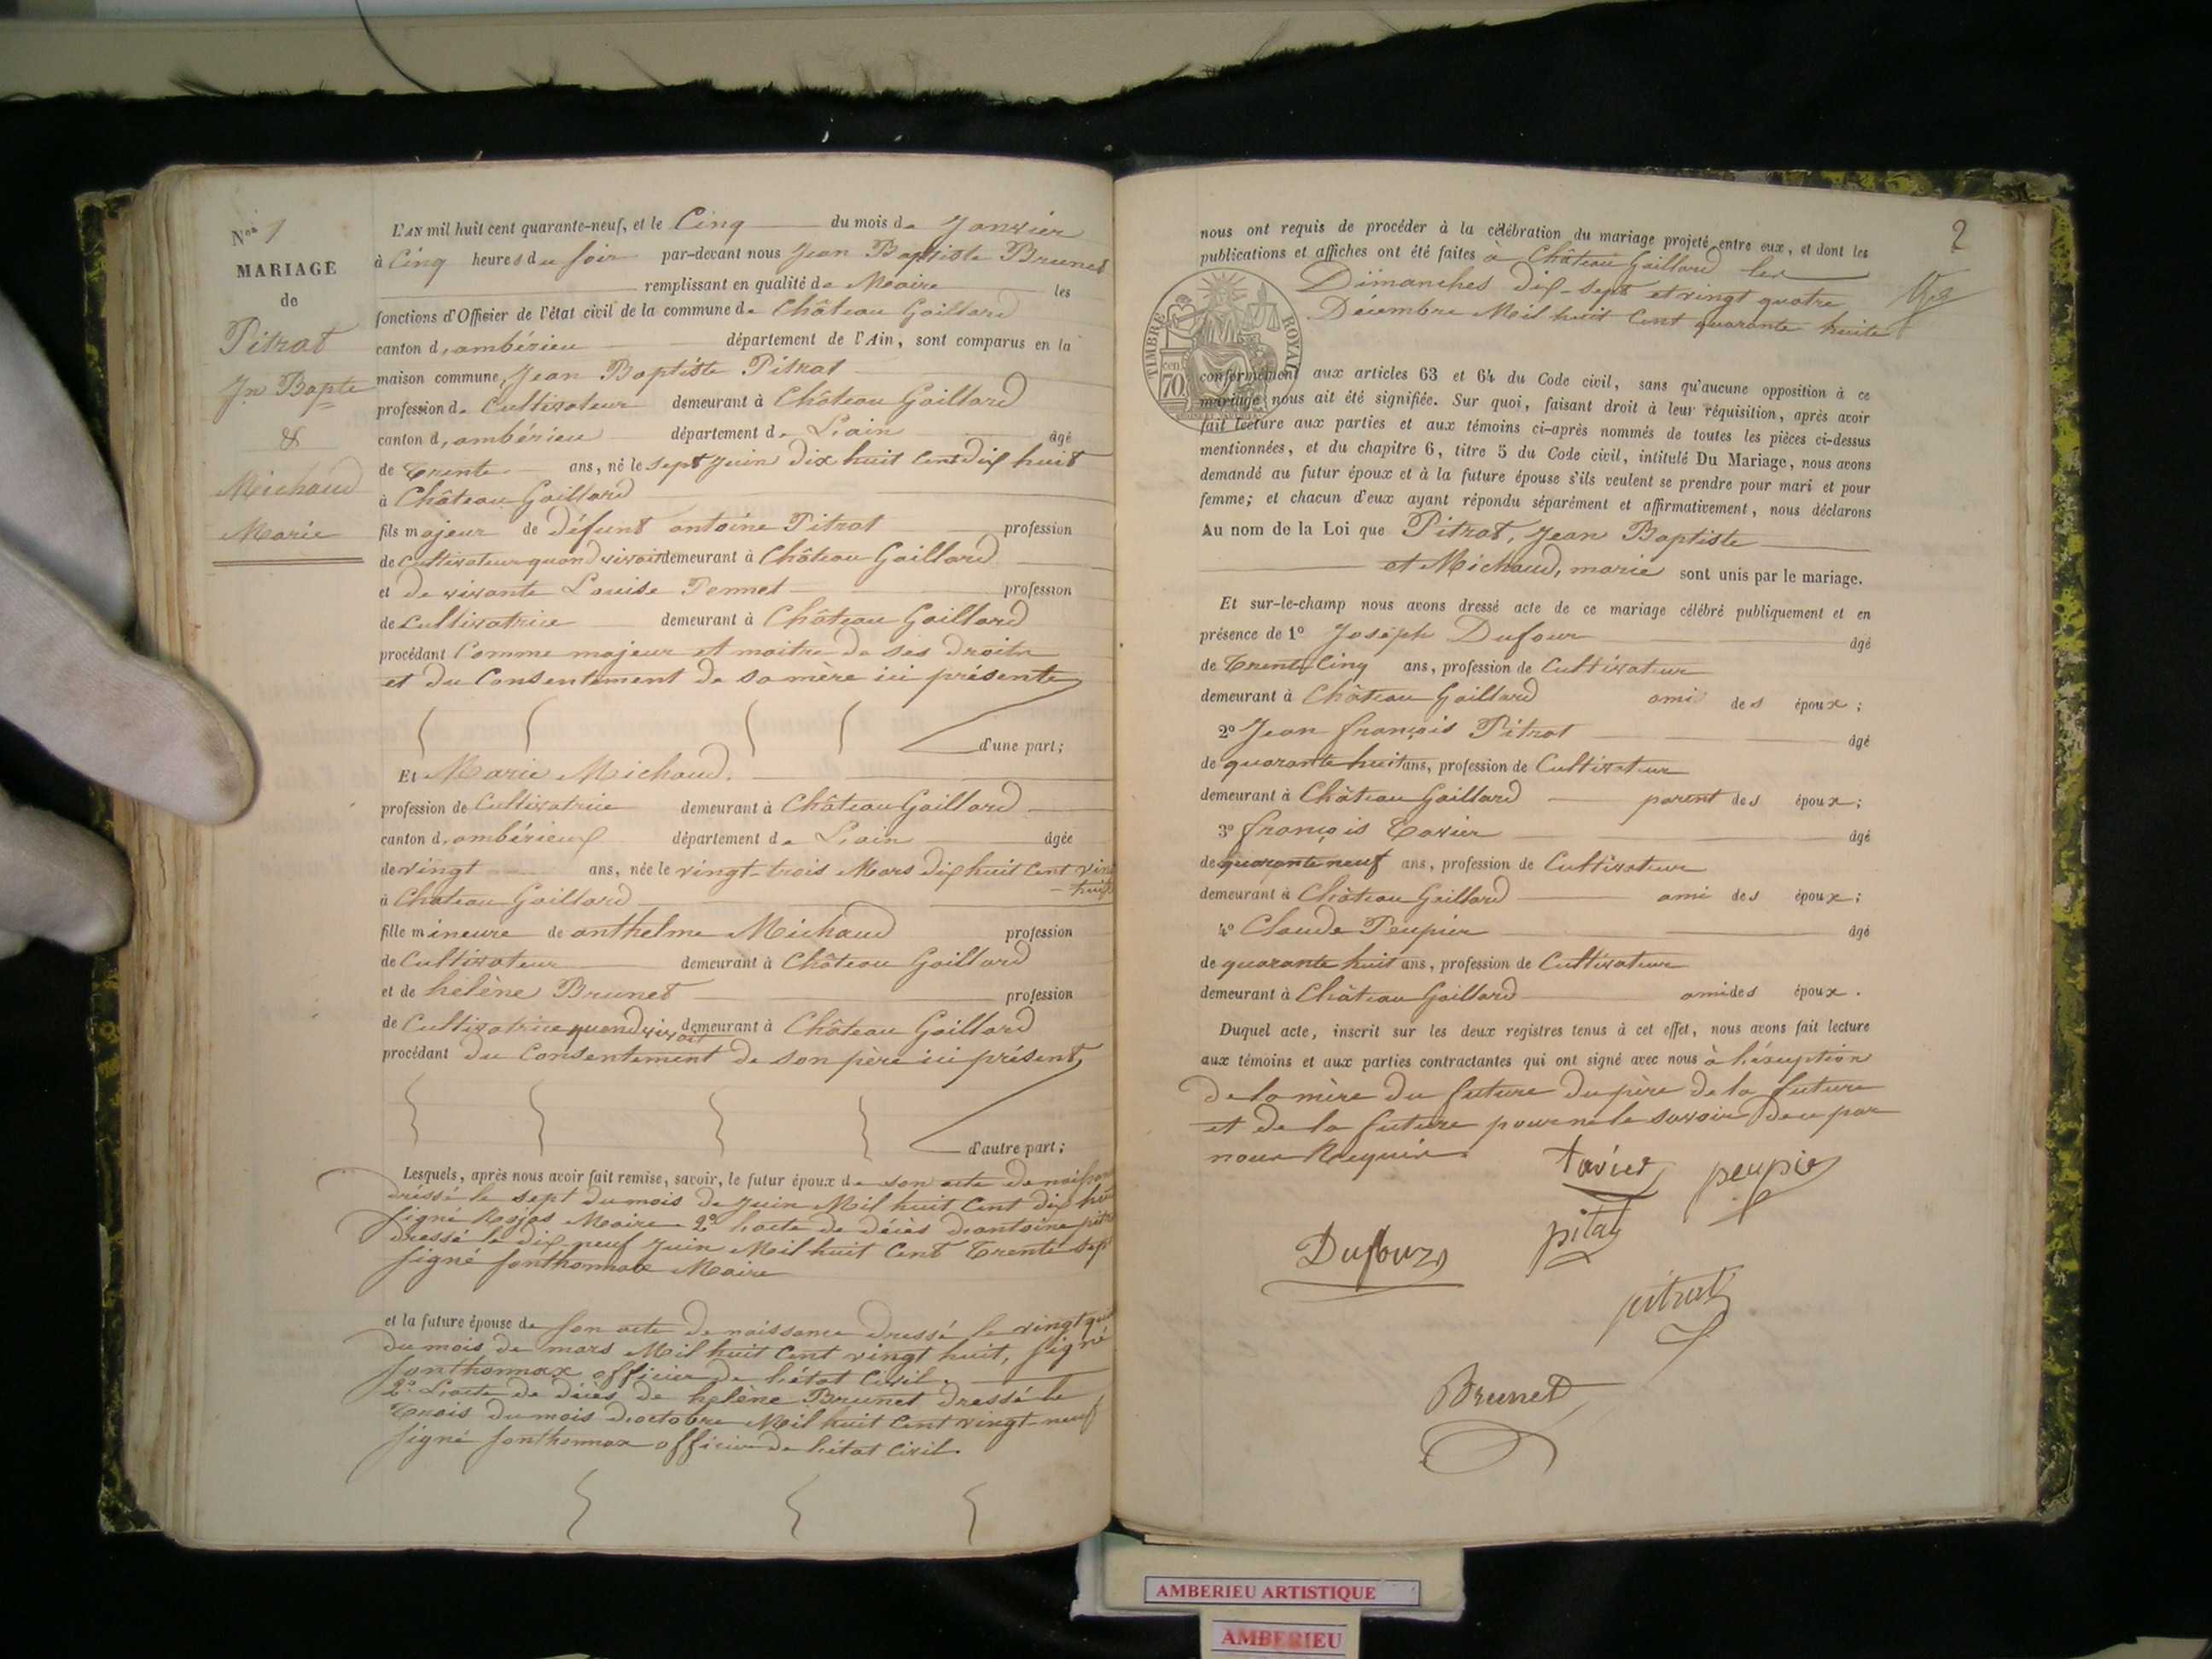 Nos 1
MARIAGE
de
Pitrat
Jn Bapte
&
Michaud
Marie
L'AN mil huit cent quarante-neuf, et le Cinq du mois de Janvier
à Cinq heures du soir par-devant nous Jean Baptiste Brunet
remplissant en qualité de Maire les
fonctions d'Officier de l'état civil de la commune de Château Gaillard
canton d'ambérieu département de l'Ain, sont comparus en la
maison commune, Jean Baptiste Pitrat
profession de Cultivateur demeurant à Château Gaillard
canton d'ambérieu département de L'ain âgé
de Trente ans, né le sept Juin dix huit Cent dix huit
à Château Gaillard
fils majeur de défunt antoine Pitrat profession
de Cultivateur quand vivait demeurant à Château Gaillard
et de vivante Louise Pennet profession
de Cultivatrice demeurant à Château Gaillard
procédant Comme majeur et maitre de ses droits
et du Consentement de sa mère ici présente
d'une part;
Et Marie Michaud.
profession de Cultivatrice demeurant à Château Gaillard
canton d'ambérieux département de L'ain âgée
de vingt ans, née le vingt-trois Mars dix huit Cent vin
-huit
à Château Gaillard
fille mineure de anthelme Michaud profession
de Cultivateur demeurant à Château Gaillard
et de helène Brunet profession
de Cultivatrice quand vivait demeurant à Château Gaillard
procédant du Consentement de son père ici présent
d'autre part;
Lesquels, après nous avoir fait remise, savoir, le futur époux de son acte de naissan
dréssé le sept du mois de Juin Mil huit Cent dix hui
signé Maire 2º L'acte de décès d'antoine pitr
dressé le dix-neuf Juin Mil huit Cent Trente sept
signé fonthonnax Maire
et la future épouse de son acte de naissance dressé le vingt qu
du mois de mars Mil huit Cent vingt huit, signé
fonthonnax officier de l'état Civil.
2º L'acte de décès de helène Brunet dressé le
Trois du mois d'octobre Mil huit Cent vingt-neuf
signé fonthonnax officier de l'état Civil.
2
nous ont requis de procéder à la célébration du mariage projeté entre eux, et dont les
publications et affiches ont été faites à Château Gaillard les
Dimanches dix-sept et vingt quatre
Décembre Mil huit Cent quarante huite
TIMBRE ROYAL
cen
70
conformément aux articles 63 et 64 du Code civil, sans qu'aucune opposition à ce
mariage nous ait été signifiée. Sur quoi, faisant droit à leur réquisition, après avoir
fait lecture aux parties et aux témoins ci-après nommés de toutes les pièces ci-dessus
mentionnées, et du chapitre 6, titre 5 du Code civil, intitulé Du Mariage, nous avons
demandé au futur époux et à la future épouse s'ils veulent se prendre pour mari et pour
femme; et chacun d'eux ayant répondu séparément et affirmativement, nous déclarons
Au nom de la Loi que Pitrat, Jean Baptiste
et Michaud, marie sont unis par le mariage.
Et sur-le-champ nous avons dressé acte de ce mariage célébré publiquement et en
présence de 1º Joseph Dufour âgé
de Trente Cinq ans, profession de Cultivateur
demeurant à Château Gaillard ami des époux;
2º Jean françois Pitrat âgé
de quarante huit ans, profession de Cultivateur
demeurant à Château Gaillard parent des époux;
3º françois Tavier âgé
de quarante neuf ans, profession de Cultivateur
demeurant à Château Gaillard ami des époux;
4º Claude Peupier âgé
de quarante huit ans, profession de Cultivateur
demeurant à Château Gaillard ami des époux.
Duquel acte, inscrit sur les deux registres tenus à cet effet, nous avons fait lecture
aux témoins et aux parties contractantes qui ont signé avec nous à l'éxception
de la mère du future du père de la future
et de la future pour ne le savoir de ce par
nous Requis.
Tavier peupier
Dufour pitat
pitrat
Brunet
AMBERIEU ARTISTIQUE
AMBERIEU